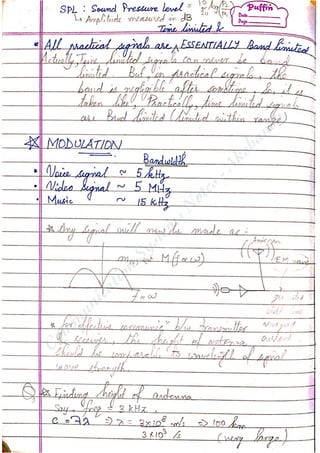 SPL : Sound Pressure Level =
Puffin
Date
Page
↳ Amplitude measured in dB
Time limited &
* All practical signals are ESSENTIALLY Band limited
Actually, Time limited signals can never be band
limited. But, in practical signals, the
band is negligible after sometime, so, it is
taken like, Practically, time limited signals
are Band limited (limited within range)
MODULATION
Bandwidth
• Voice signal ~ 5 kHz
• Video signal ~ 5 MHz
• Music ~ 15 kHz
* Any signal will now be made as :-
Antenna
M(f or ω)
EM wave
f or ω
* for effective communicⁿ b/w transmitter
& receiver, the height of antenna
should be comparable to wavelength of signal
wave strength.
Q Finding height of antenna
Say, freq = 3 kHz,
C = fλ ⇒ λ = 3×10⁸ m/s ⇒ 100 km
3×10³ /s (very large)